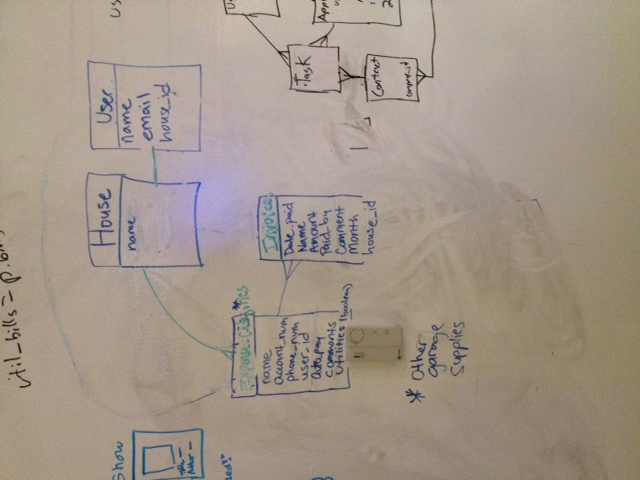 util_bills = p.bi
Show
House
name
User
name
email
house_id
us
ded?"
Title
Autor
Expense_
name
account_num
phone_num
user_id
auto_pay
comments
utilities (boolean)
Invoices
Date_paid
Name
Amount
Paid_by
Comment
Month
house_id
* Other
garage
supplies
Task
Contract
Appl